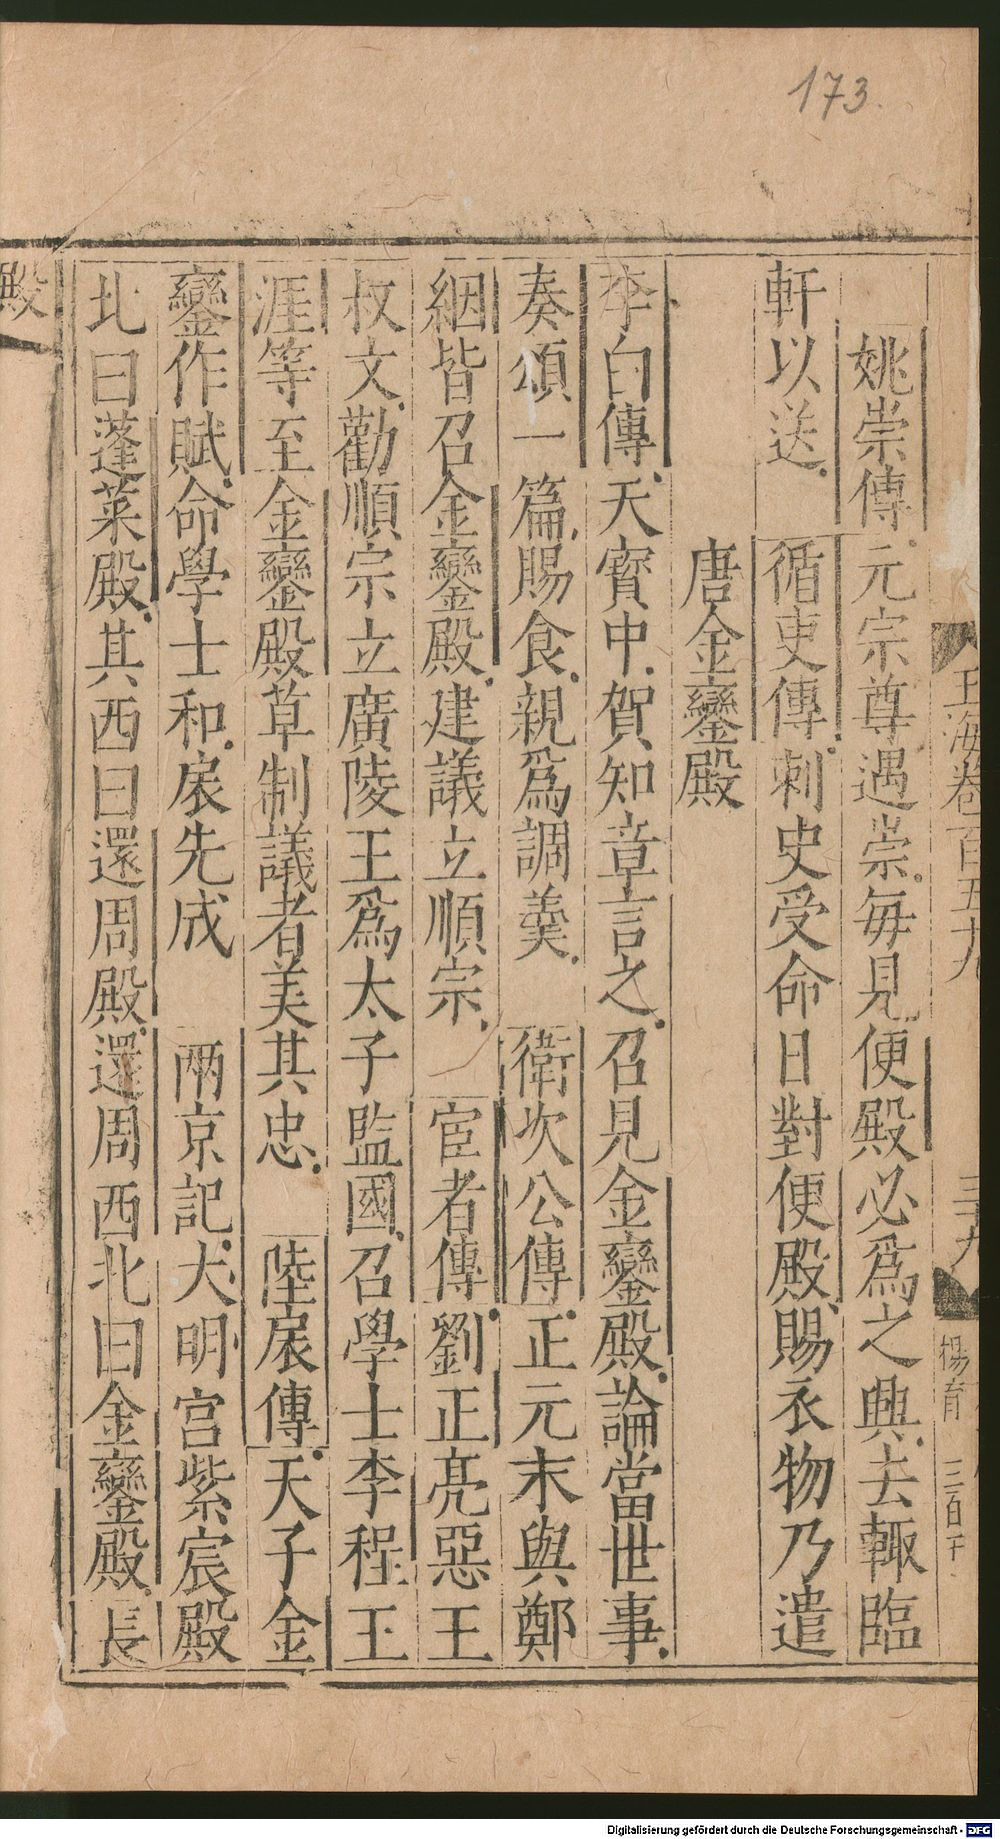 173.
玉海卷百五十九　三十九　楊育　三百千
姚崇傳元宗尊遇崇每見便殿必爲之興去輙臨
軒以送　循吏傳刺史受命日對便殿賜衣物乃遣
唐金鑾殿
李白傳天寶中賀知章言之召見金鑾殿論當世事
奏頌一篇賜食親爲調羹　衛次公傳正元末與鄭
絪皆召金鑾殿建議立順宗　宦者傳劉正亮惡王
叔文勸順宗立廣陵王爲太子監國召學士李程王
涯等至金鑾殿草制議者美其忠　陸扆傳天子金
鑾作賦命學士和扆先成　兩京記大明宫紫宸殿
北曰蓬萊殿其西曰還周殿還周西北曰金鑾殿長
殿
Digitalisierung gefördert durch die Deutsche Forschungsgemeinschaft - DFG